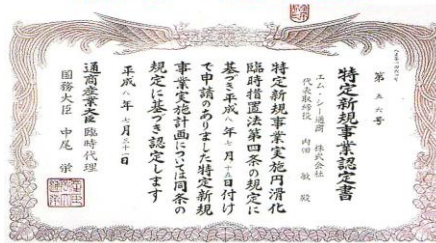 第 五 六 号
特定新規事業認定書
エム・シー通商 株式会社
代表取締役 内田 敏 殿
特定新規事業実施円滑化
臨時措置法第四条の規定に
基づき平成八年七月十五日付け
で申請のありました特定新規
事業実施計画については同条の
規定に基づき認定します
平成八年七月三十一日
通商産業大臣 臨時代理
国務大臣 中尾 栄